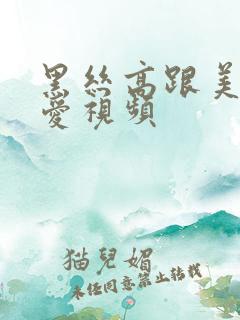 黑絲高跟美
愛視頻
猫兒媚
未经同意禁止转载